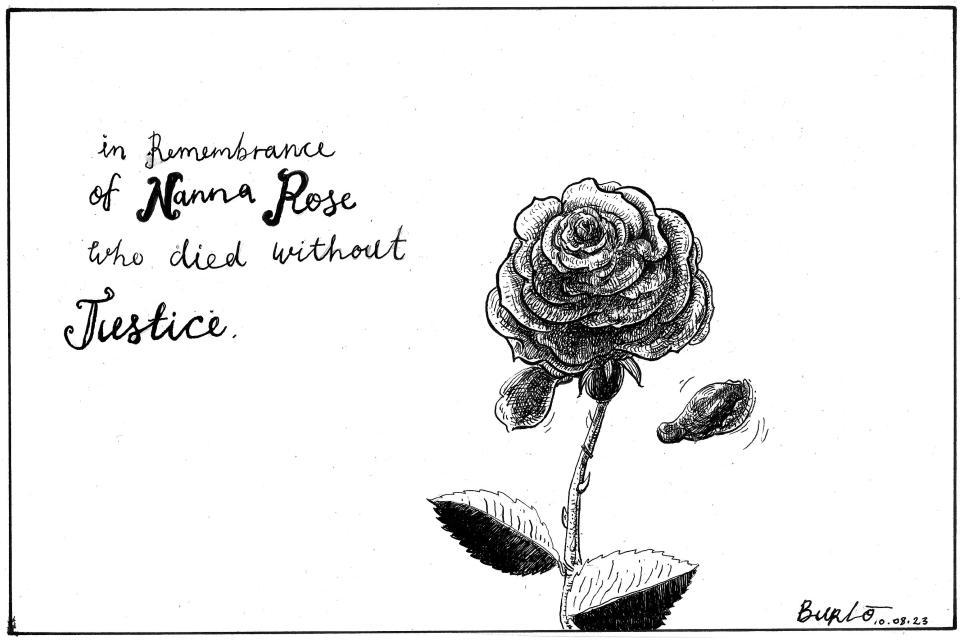 in Remembrance
of Nanna Rose
who died without
Justice.
BURLO 10.08.23